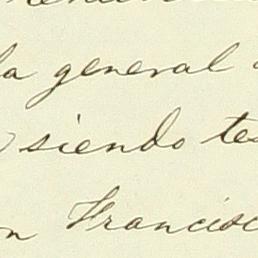 la general
siendo tes
n Francisc